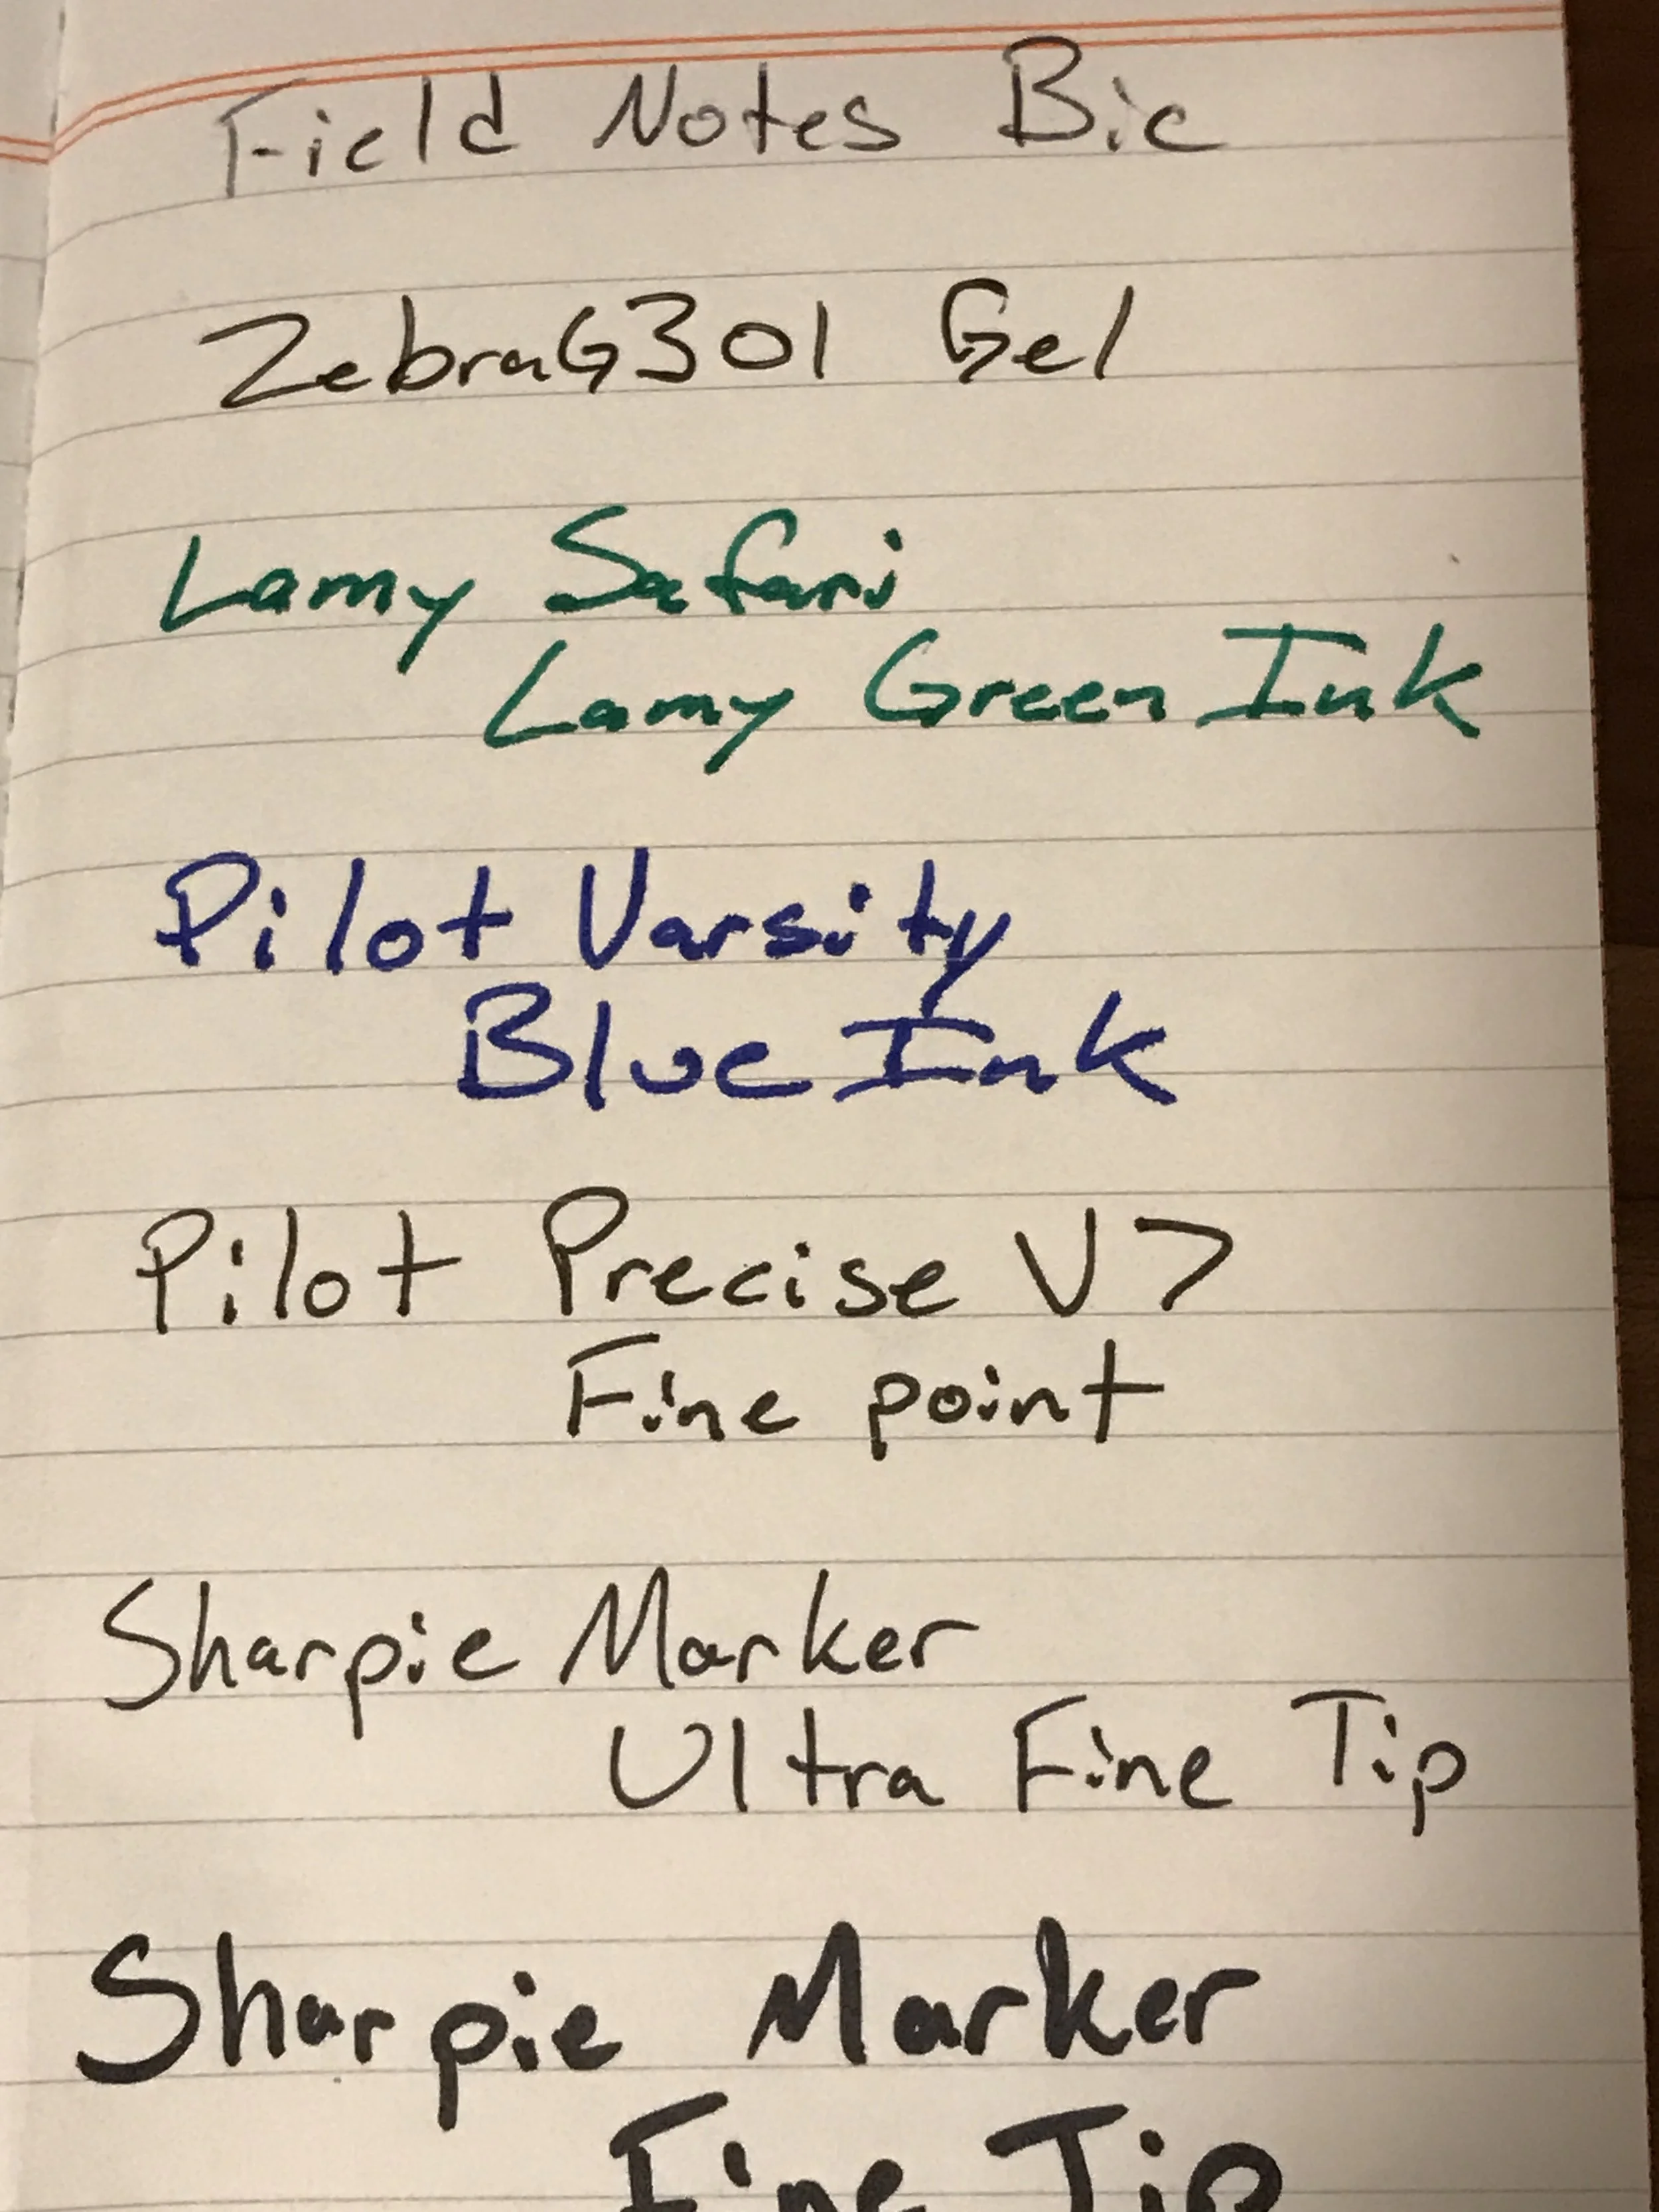 Field Notes Bic
Zebra G301 Gel
Lamy Safari
Lamy Green Ink
Pilot Varsity
Blue Ink
Pilot Precise V7
Fine point
Sharpie Marker
Ultra Fine Tip
Sharpie Marker
Fine Tip